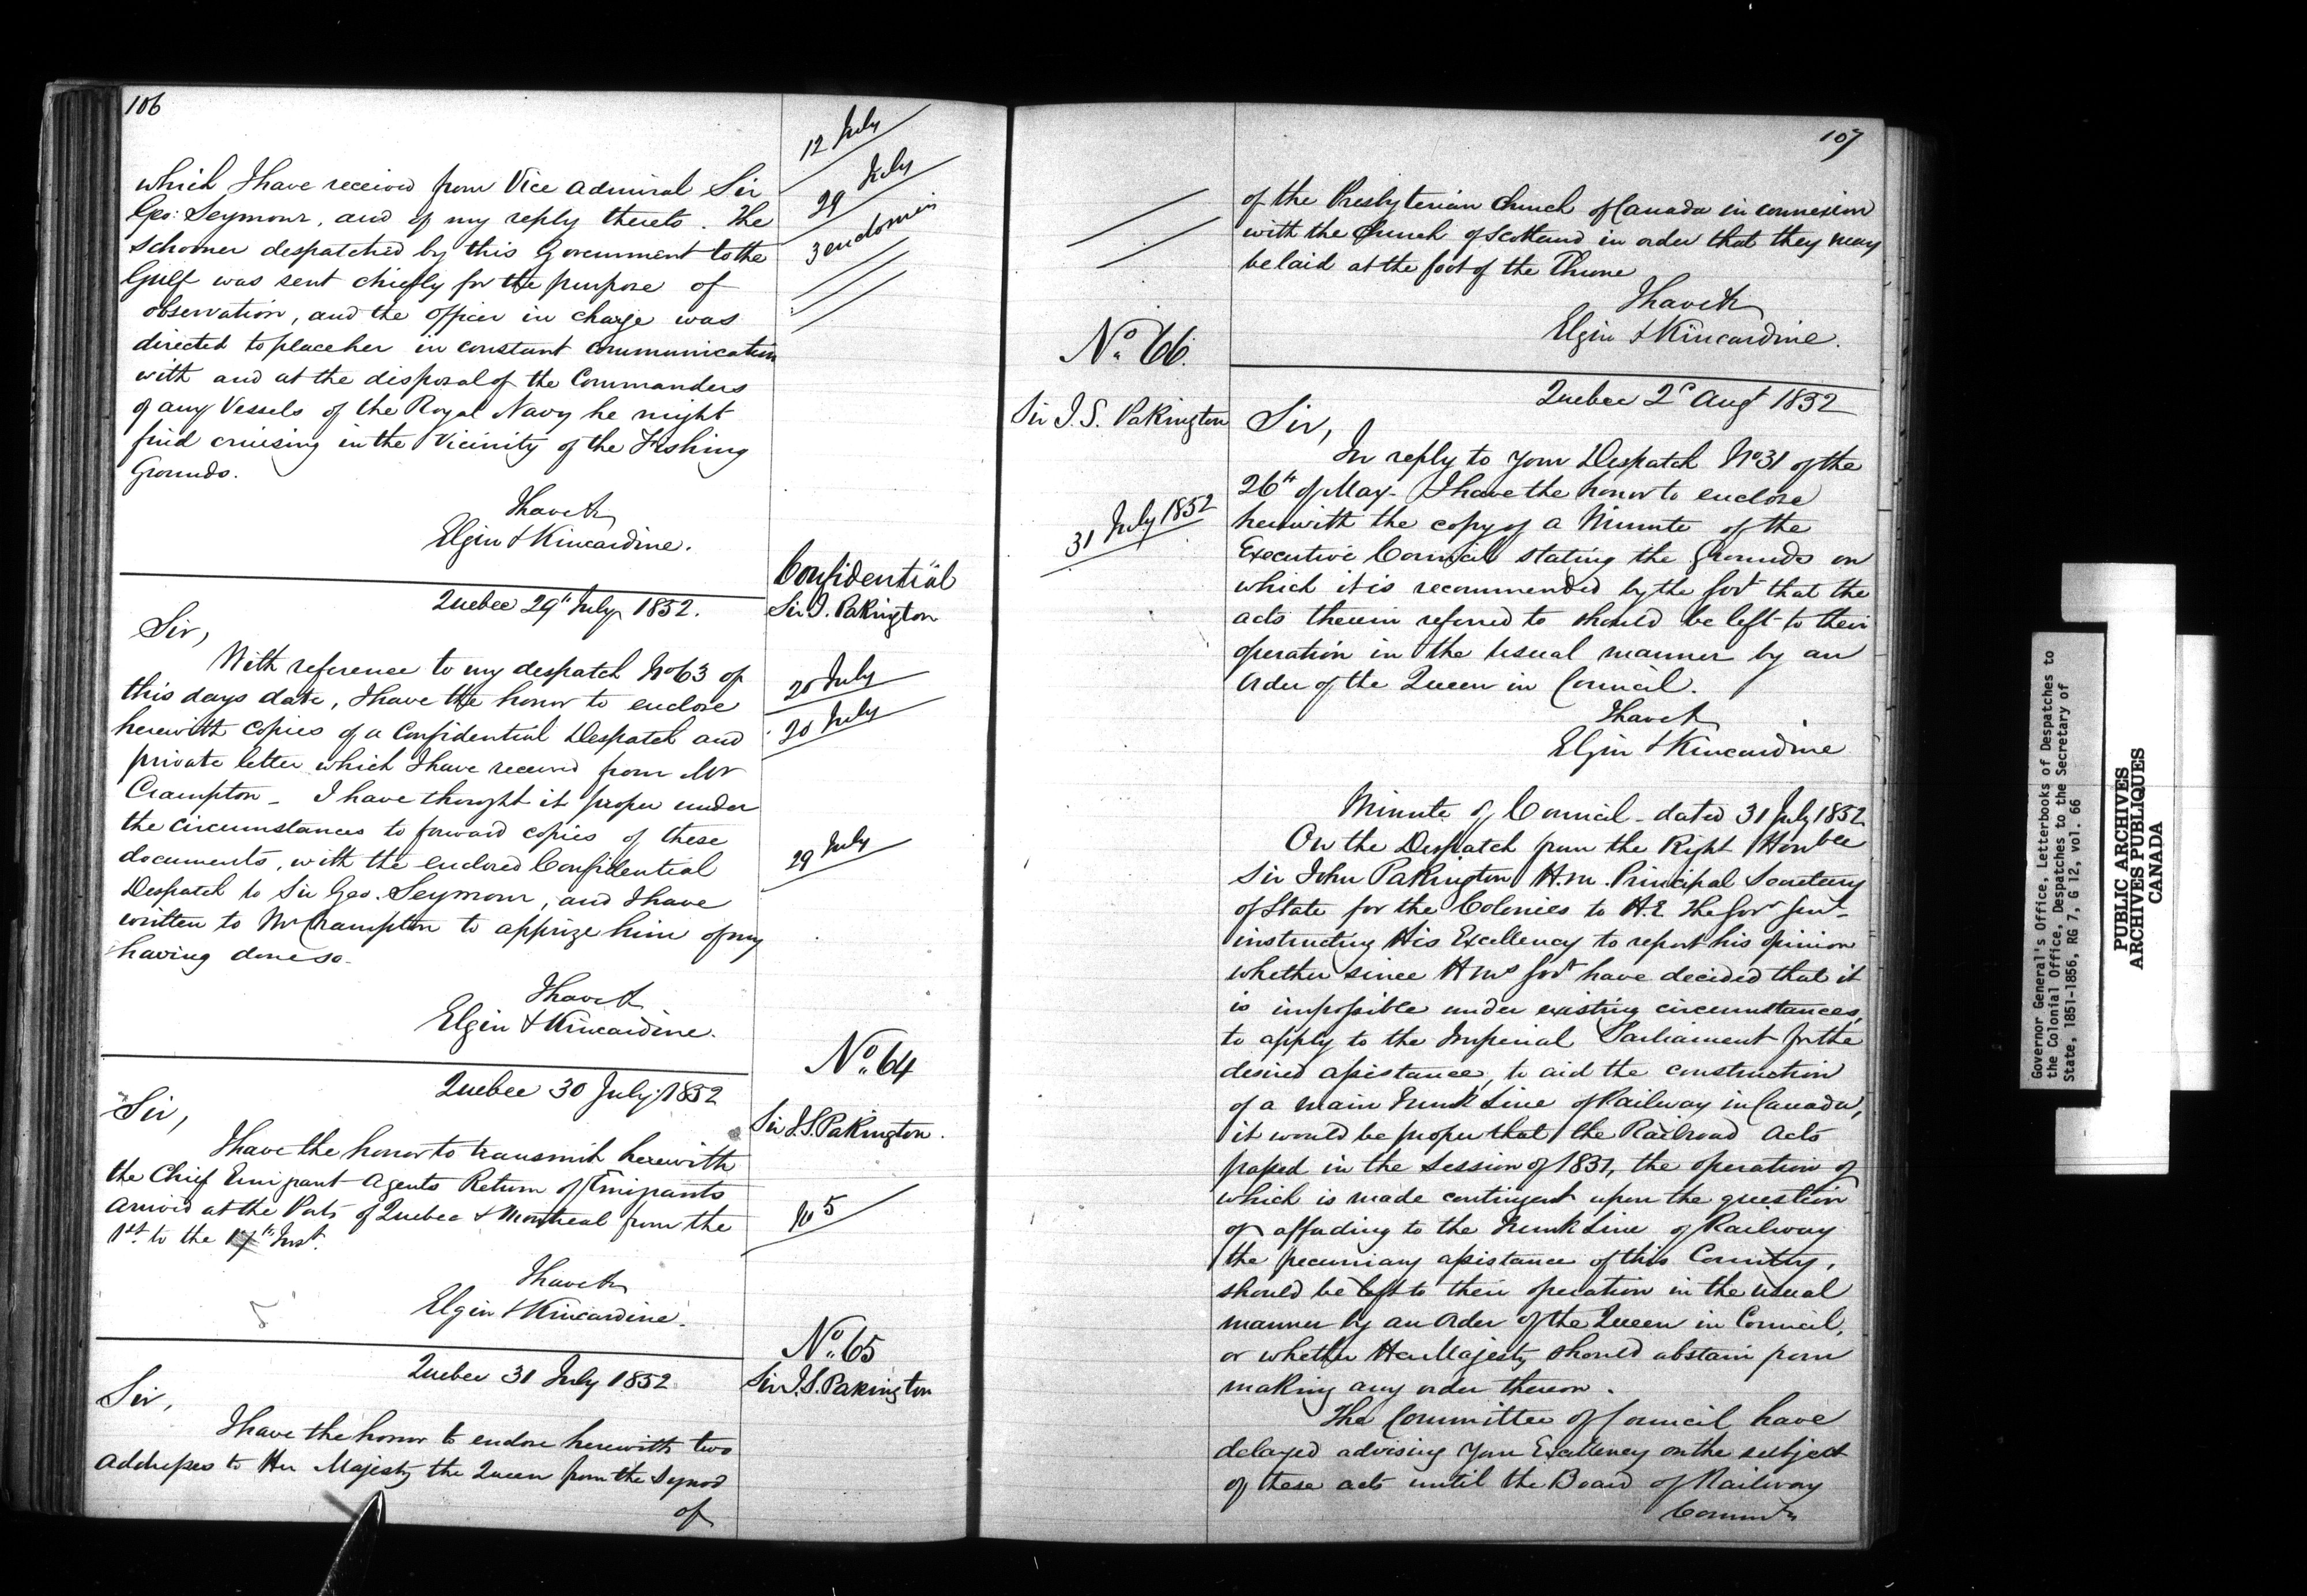 106
12 July
29 July
3 enclosures
which I have received from Vice Admiral Sir
Geo: Seymour, and of my reply thereto. The
Schooner despatched by this Government to the
Gulf was sent chiefly for the purpose of
observation, and the officer in charge was
directed to place her in constant communication
with and at the disposal of the Commanders
of any Vessels of the Royal Navy he might
find cruising in the Vicinity of the Fishing
Grounds.
I have &c
Elgin & Kincardine.
Confidential
Sir J. Pakington
Quebec 29th July 1852.
Sir,
With reference to my despatch No 63 of
this days date, I have the honor to enclose
herewith copies of a Confidential Despatch and
private letter which I have received from Mr
Crampton - I have thought it proper under
the circumstances to forward copies of these
documents, with the enclosed Confidential
Despatch to Sir Geo. Seymour, and I have
written to Mr Crampton to apprize him of my
having done so.
20 July
20 July
29 July
I have &c
Elgin & Kincardine.
No. 64
Sir J.S. Pakington.
Quebec 30 July 1852
Sir,
I have the honor to transmit herewith
the Chief Emigrant Agents Return of Emigrants
arrived at the Ports of Quebec & Montreal from the
1st to the 17th Inst.
No 5
I have &c
Elgin & Kincardine.
No. 65
Sir J.S. Pakington
Quebec 31 July 1852
Sir,
I have the honor to enclose herewith two
Addresses to Her Majesty the Queen from the Synod
of
107
of the Presbyterian Church of Canada in connexion
with the Church of Scotland in order that they may
be laid at the foot of the Throne
I have &c
Elgin & Kincardine.
No. 66.
Sir J.S. Pakington
Quebec 2d Augt 1852
Sir,
In reply to your Despatch No 31 of the
26th of May - I have the honor to enclose
herewith the copy of a Minute of the
Executive Council stating the grounds on
which it is recommended by the Govt that the
acts therein referred to should be left to their
operation in the usual manner by an
Order of the Queen in Council.
31 July 1852
I have &c
Elgin & Kincardine
Minute of Council - dated 31 July 1852
On the Despatch from the Right Honble
Sir John Pakington H.M. Principal Secretary
of State for the Colonies to H.E. The Govr Genl-
instructing His Excellency to report his opinion
whether since H Ms Govt have decided that it
is impossible under existing circumstances,
to apply to the Imperial Parliament for the
desired assistance, to aid the construction
of a Main Trunk Line of Railway in Canada,
it would be proper that the Railroad Acts
passed in the Session of 1851, the operation of
which is made contingent upon the question
of affording to the Trunk Line of Railway
the pecuniary assistance of this Country,
should be left to their operation in the usual
manner by an Order of the Queen in Council,
or whether Her Majesty should abstain from
making any order thereon.
The Committee of Council have
delayed advising Your Excellency on the subject
of these acts until the Board of Railway
Commrs
Governor General's Office, Letterbooks of Despatches to
the Colonial Office, Despatches to the Secretary of
State, 1851-1856, RG 7, G 12, vol. 66
PUBLIC ARCHIVES
ARCHIVES PUBLIQUES
CANADA